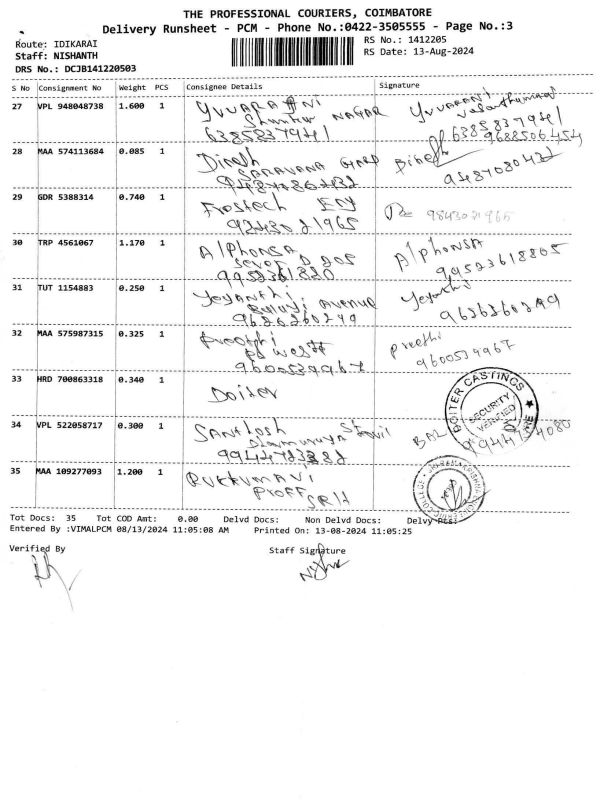 THE PROFESSIONAL COURIERS, COIMBATORE
Delivery Runsheet - PCM - Phone No.:0422-3505555 - Page No.:3
Route: IDIKARAI
RS No.: 1412205
Staff: NISHANTH
RS Date: 13-Aug-2024
DRS No.: DCJB141220503
S No Consignment No Weight PCS Consignee Details Signature
27 VPL 948048738 1.600 1 YUVARANI YUVARANI
NAGAR
6385837941 6385837941
9688506454
28 MAA 574113684 0.085 1 Dinesh Dinesh
SARAVANA
9487080432
29 GDR 5388314 0.740 1 Frostech Eng
9843021965
30 TRP 4561067 1.170 1 Alphonsa Alphonsa
31 TUT 1154883 0.250 1 Jeyanthi Jeyanthi
Balaji Avenue
9626260299 9626260299
32 MAA 575987315 0.325 1 Preethi Preethi
9600539967 9600539967
33 HRD 700863318 0.340 1 Doiter
DOITER CASTINGS
SECURITY
VERIFIED
34 VPL 522058717 0.300 1 Santhosh
35 MAA 109277093 1.200 1 Rukkumani
Proff
SRH
Tot Docs: 35 Tot COD Amt: 0.00 Delvd Docs: Non Delvd Docs: Delvy Pts:
Entered By :VIMALPCM 08/13/2024 11:05:08 AM Printed On: 13-08-2024 11:05:25
Verified By Staff Signature